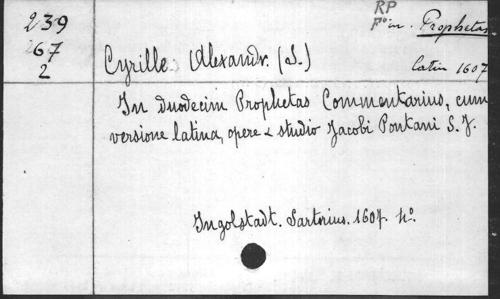 239
267
2
RP
F° in. Prophetas
latin 1607
Cyrille Alexandr. (S.)
In duodecim Prophetas Commentarius, cum
versione latina, opere & studio Jacobi Pontani S. J.
Ingolstadt. Sartorius. 1607. 4°.